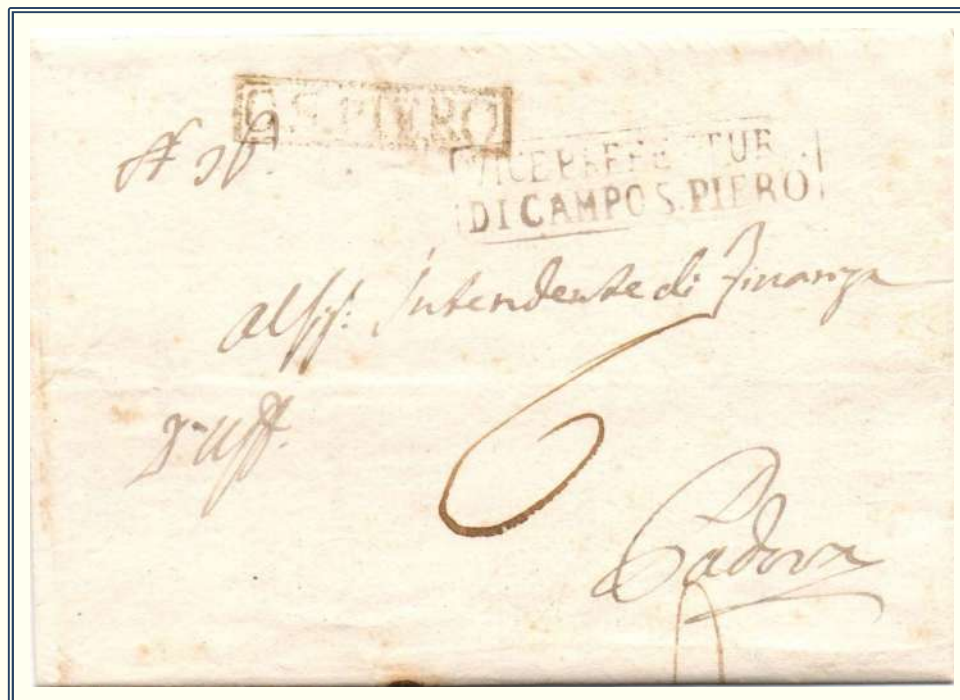 C.S. PIERO
VICE PREFETTUR
DI CAMPO S. PIERO
Al Sig.: Intendente di Finanza
6
Padova